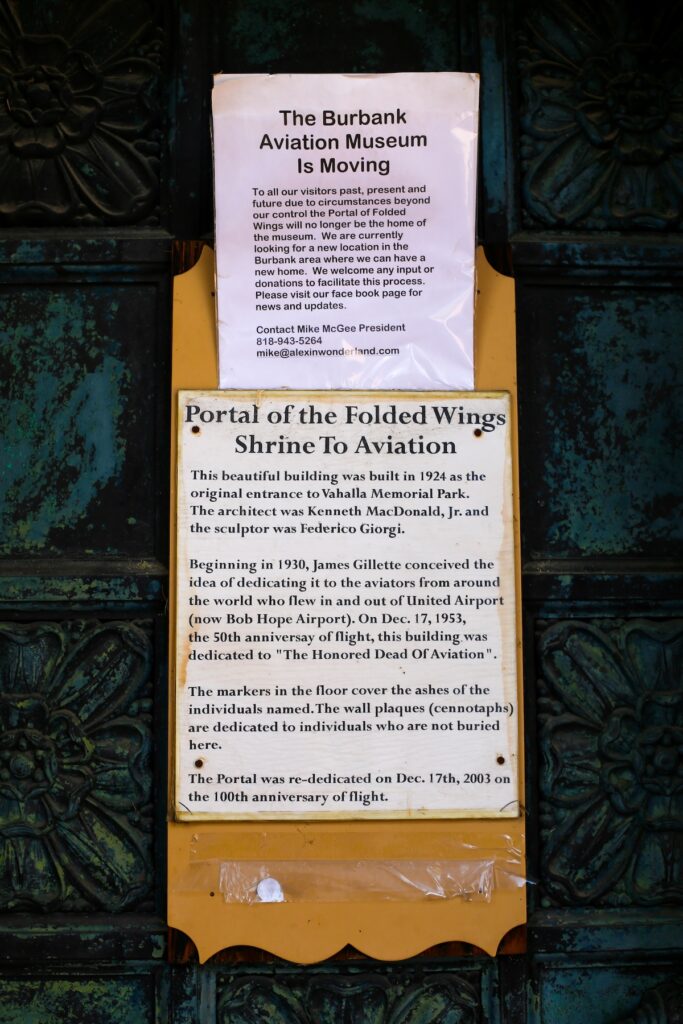 The Burbank
Aviation Museum
Is Moving
To all our visitors past, present and
future due to circumstances beyond
our control the Portal of Folded
Wings will no longer be the home of
the museum. We are currently
looking for a new location in the
Burbank area where we can have a
new home. We welcome any input or
donations to facilitate this process.
Please visit our face book page for
news and updates.
Contact Mike McGee President
818-943-5264
mike@alexinwonderland.com
Portal of the Folded Wings
Shrine To Aviation
This beautiful building was built in 1924 as the
original entrance to Vahalla Memorial Park.
The architect was Kenneth MacDonald, Jr. and
the sculptor was Federico Giorgi.
Beginning in 1930, James Gillette conceived the
idea of dedicating it to the aviators from around
the world who flew in and out of United Airport
(now Bob Hope Airport). On Dec. 17, 1953,
the 50th anniversay of flight, this building was
dedicated to "The Honored Dead Of Aviation".
The markers in the floor cover the ashes of the
individuals named. The wall plaques (cennotaphs)
are dedicated to individuals who are not buried
here.
The Portal was re-dedicated on Dec. 17th, 2003 on
the 100th anniversary of flight.